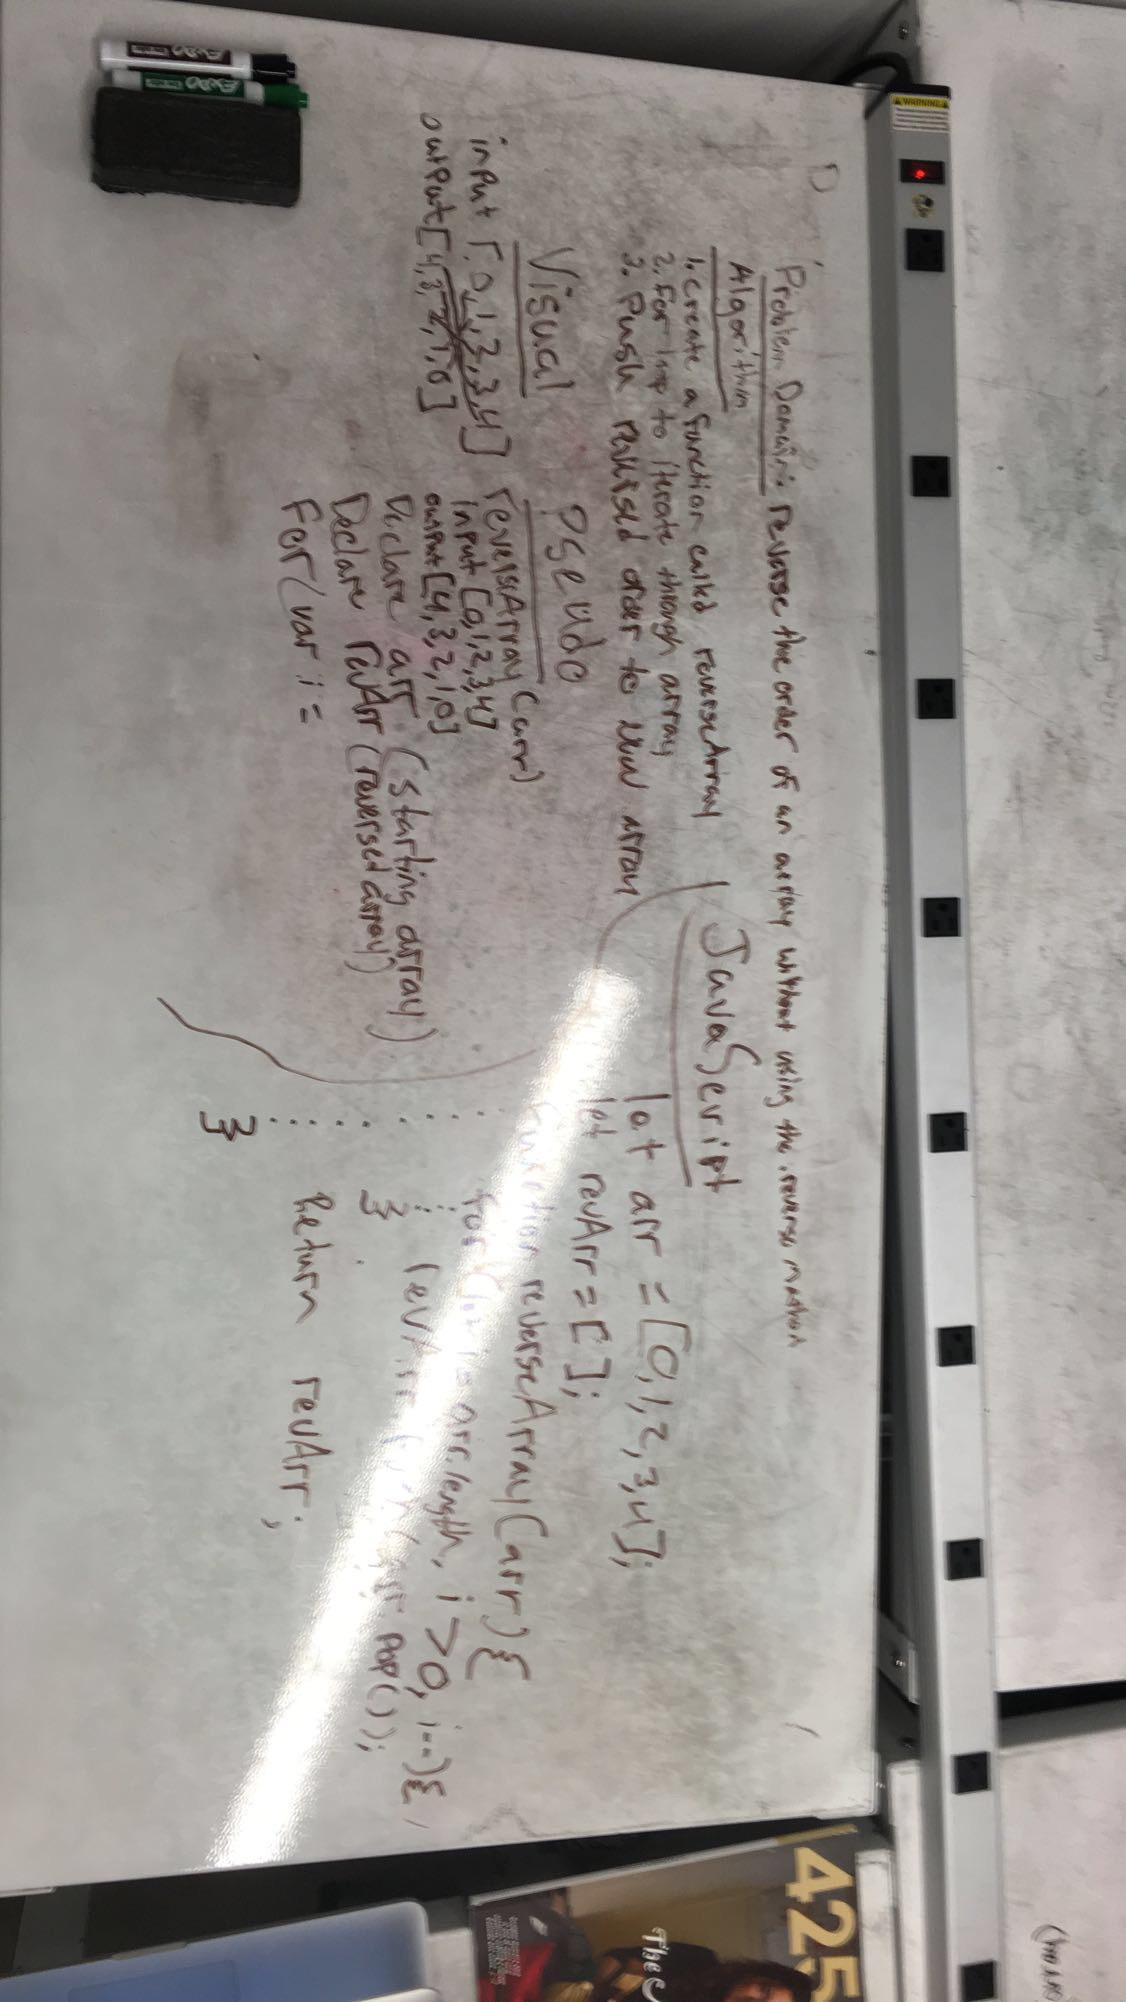 Problem Domain: reverse the order of an array without using the .reverse method
Algorithm
1. create a function called reverseArray
2. for loop to iterate through array
3. Push reversed order to new array
Visual
input [0,1,3,3,4]
output [4,3,2,1,0]
Pseudo
reverseArray(arr)
input [0,1,2,3,4]
output [4,3,2,1,0]
Declare arr (starting array)
Declare revArr (reversed array)
For(var i =
JavaScript
let arr = [0,1,2,3,4];
let revArr = [];
function reverseArray(arr){
for (let i = arr.length, i>0, i--){
revArr.push(arr.pop());
}
Return revArr;
}
WARNING
EXPO
EXPO
425
The